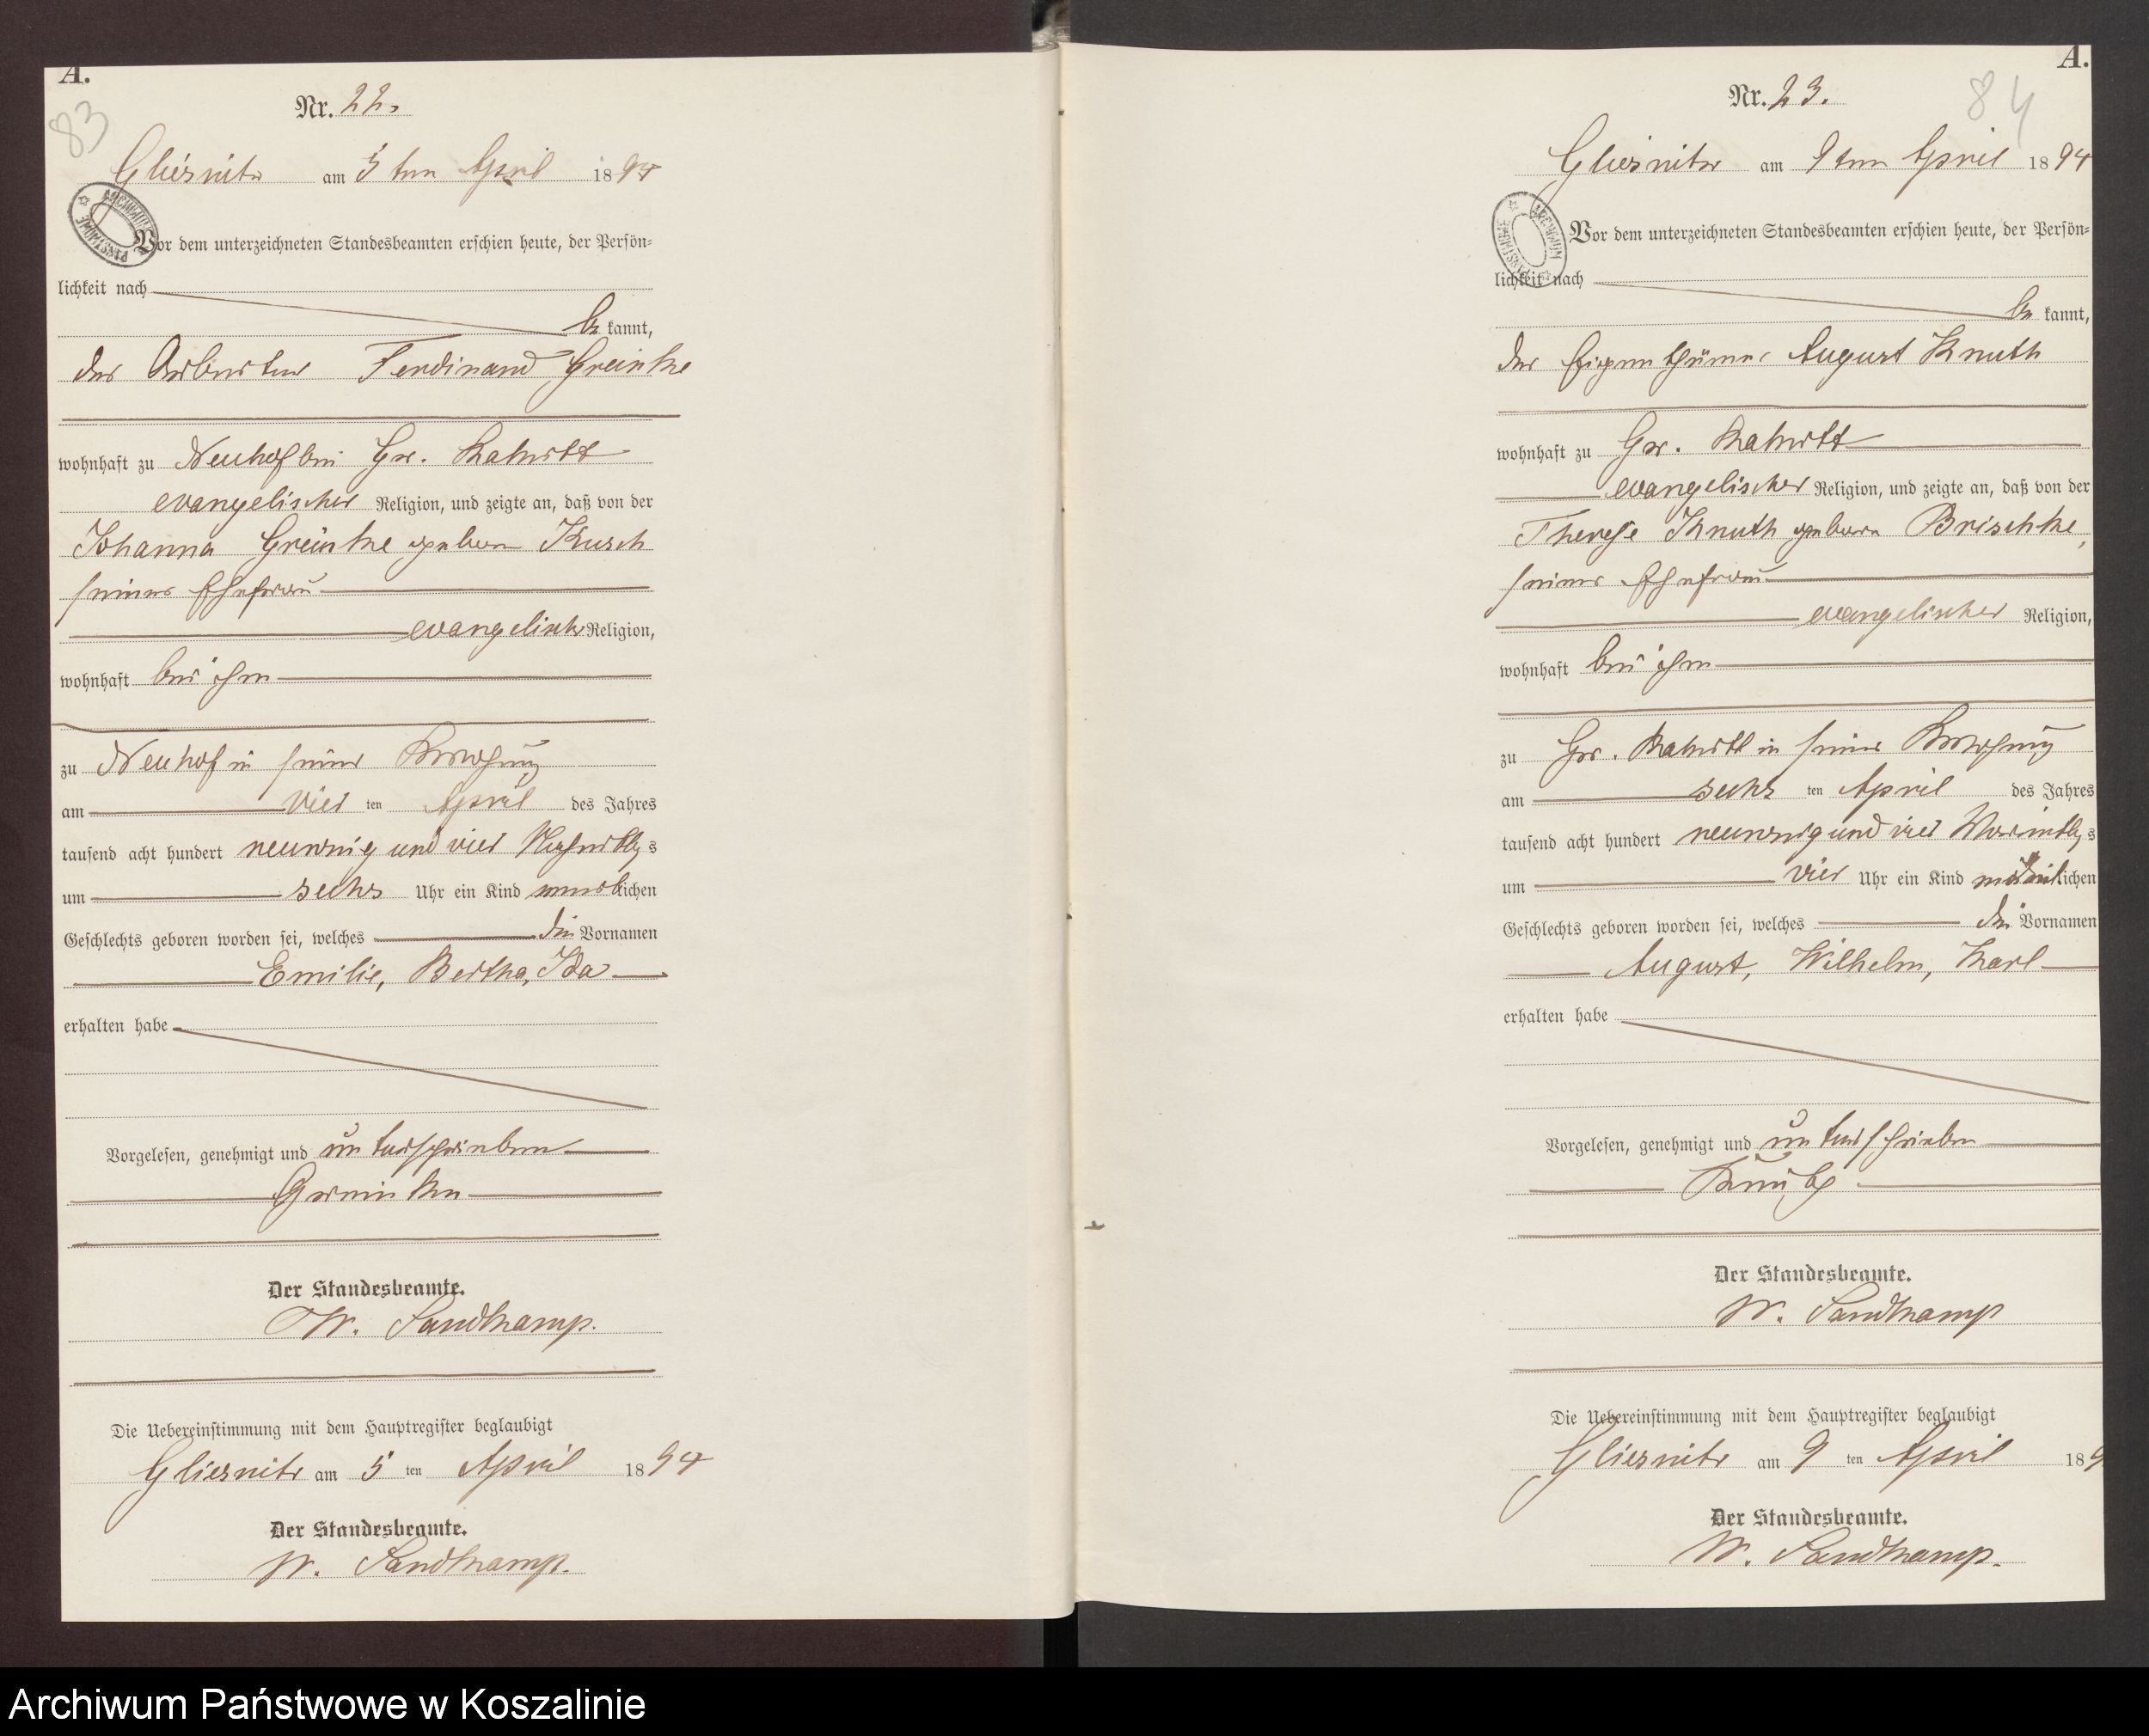 A.
83
Nr. 22.
Gliesnitz am 5 ten April 1894
Vor dem unterzeichneten Standesbeamten erschien heute, der Persön-
lichkeit nach
be kannt,
der Arbeiter Ferdinand Greinke
wohnhaft zu Neuhof bei Gr. Rakitt
evangelischer Religion, und zeigte an, daß von der
Johanna Greinke geboren Kusch
seiner Ehefrau
evangelischer Religion,
wohnhaft bei ihm
zu Neuhof in seiner Wohnung
am vier ten April des Jahres
tausend acht hundert neunzig und vier Nachmittags
um sechs Uhr ein Kind weiblichen
Geschlechts geboren worden sei, welches die Vornamen
Emilie, Bertha, Ida
erhalten habe
Vorgelesen, genehmigt und unterschrieben
Greinke
Der Standesbeamte.
W. Sandkamp.
Die Uebereinstimmung mit dem Hauptregister beglaubigt
Gliesnitz am 5 ten April 1894
Der Standesbeamte.
W. Sandkamp.
A.
84
Nr. 23.
Gliesnitz am 9 ten April 1894
Vor dem unterzeichneten Standesbeamten erschien heute, der Persön-
lichkeit nach
be kannt,
der Eigenthümer August Knuth
wohnhaft zu Gr. Rakitt
evangelischer Religion, und zeigte an, daß von der
Therese Knuth geboren Brischke,
seiner Ehefrau
evangelischer Religion,
wohnhaft bei ihm
zu Gr. Rakitt in seiner Wohnung
am sechs ten April des Jahres
tausend acht hundert neunzig und vier Vormittags
um vier Uhr ein Kind männlichen
Geschlechts geboren worden sei, welches die Vornamen
August, Wilhelm, Karl
erhalten habe
Vorgelesen, genehmigt und unterschrieben
Knuth
Der Standesbeamte.
W. Sandkamp
Die Uebereinstimmung mit dem Hauptregister beglaubigt
Gliesnitz am 9 ten April 189
Der Standesbeamte.
W. Sandkamp.
Archiwum Państwowe w Koszalinie